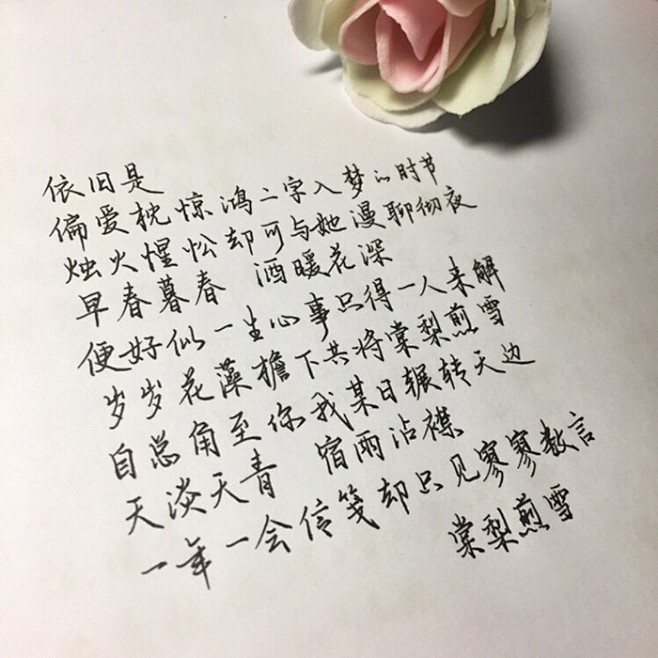 依旧是
偏爱枕惊鸿二字入梦的时节
烛火惺忪却可与她漫聊彻夜
早春暮春 酒暖花深
便好似一生心事只得一人来解
岁岁花藻檐下共将棠梨煎雪
自总角至你我某日辗转天边
天淡天青 宿雨沾襟
一年一会信笺却只见寥寥数言
棠梨煎雪